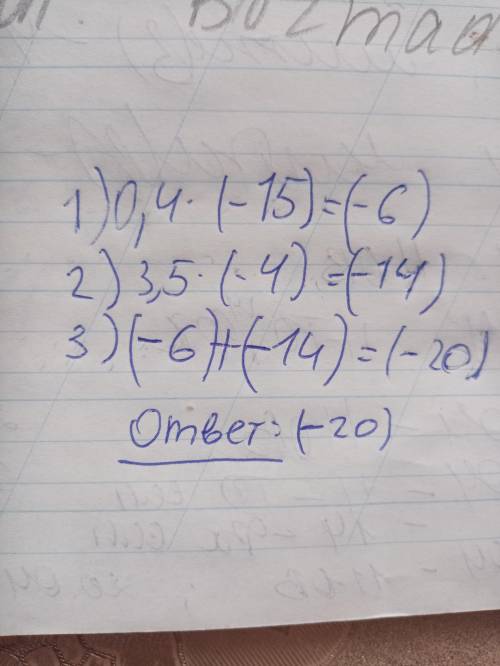 1) 0,4 · (-15) = (-6)
2) 3,5 · (-4) = (-14)
3) (-6) + (-14) = (-20)
Ответ: (-20)